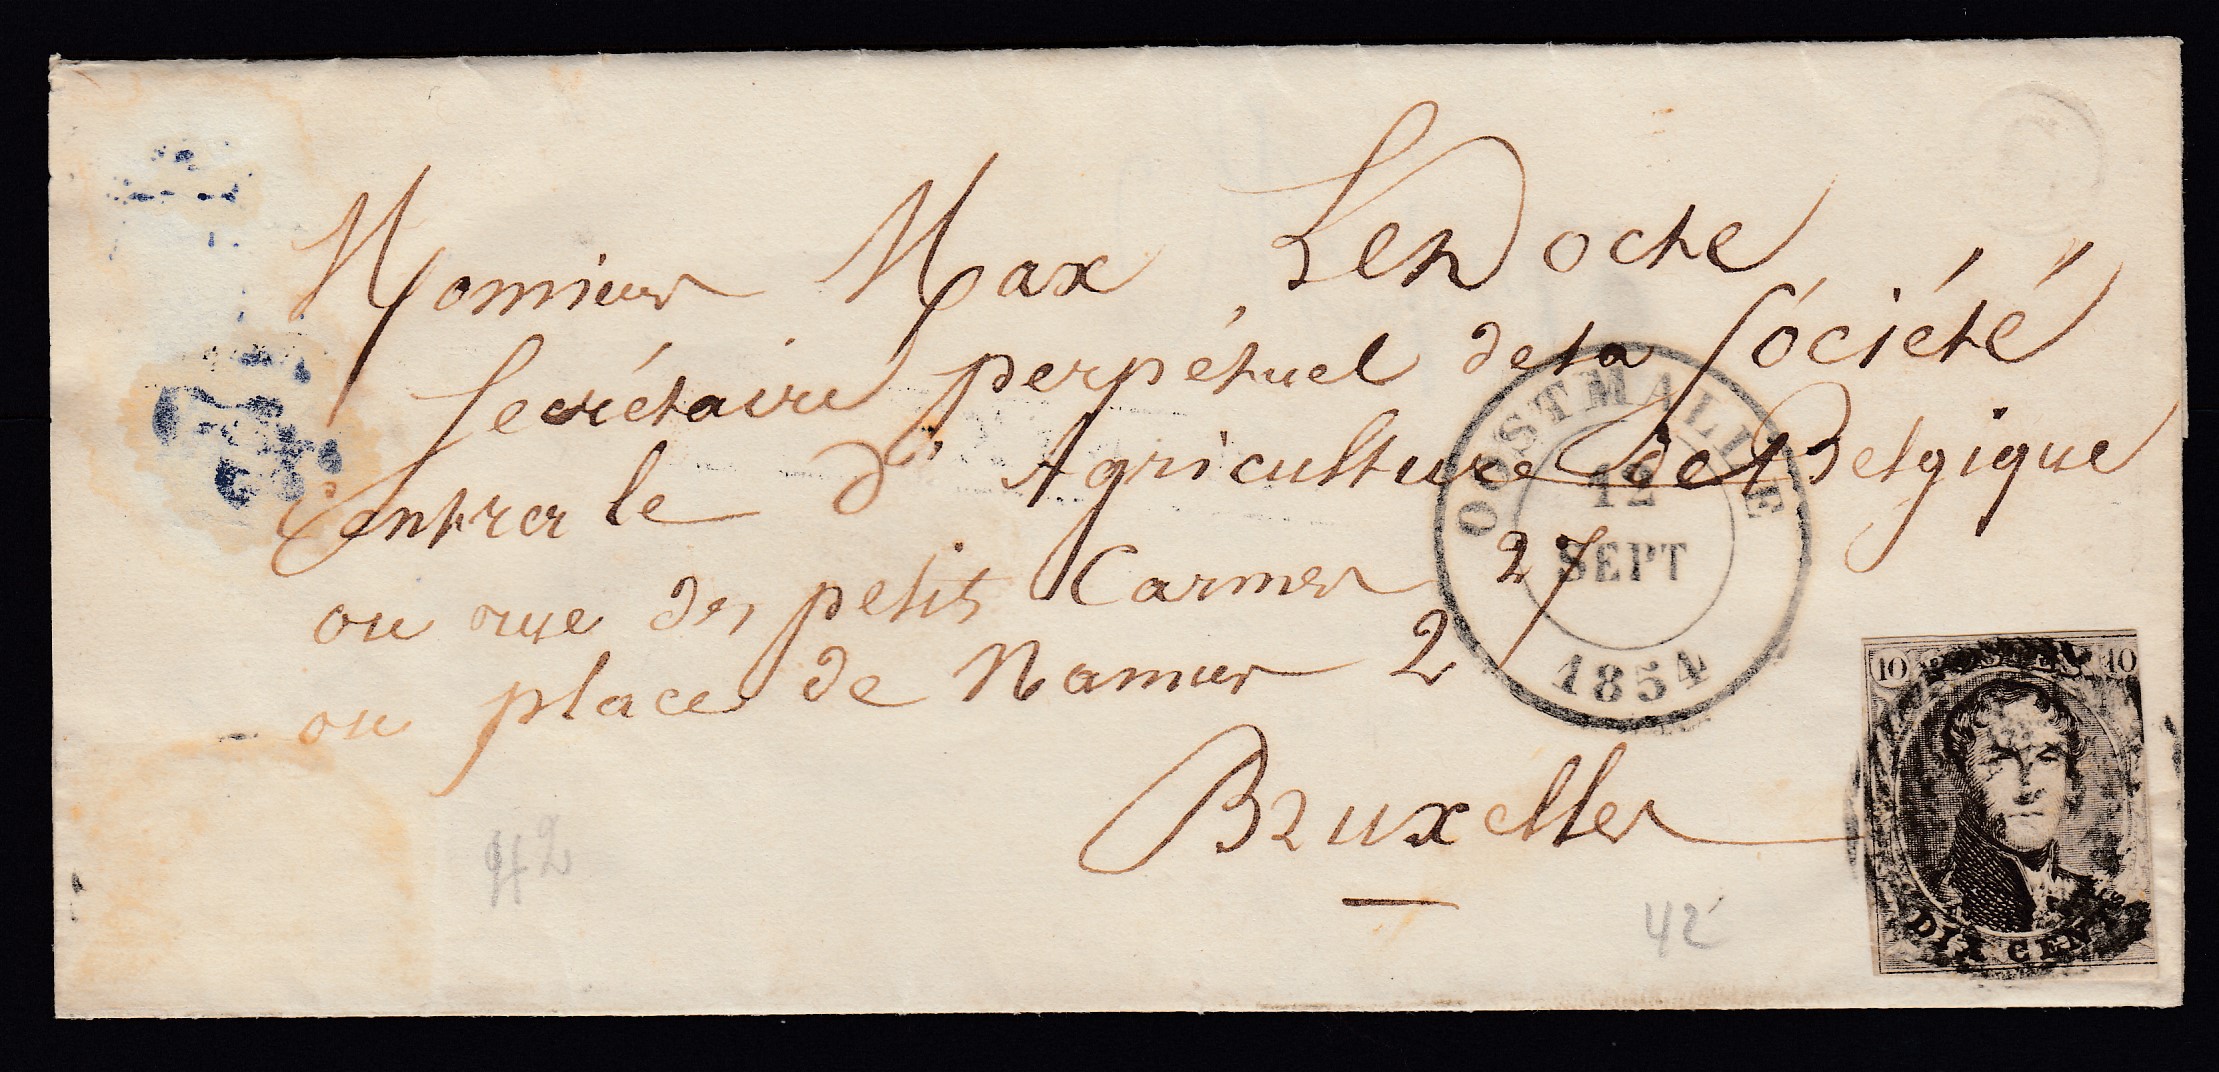 Monsieur Max LeDoche
Secrétaire perpétuel de la Société
Centrale d'Agriculture de Belgique
ou rue des petits Carmes 27
ou place de Namur 2
Bruxelles
OOSTMALLE
12
SEPT
1854
10 10
DIX CENTS
42
42